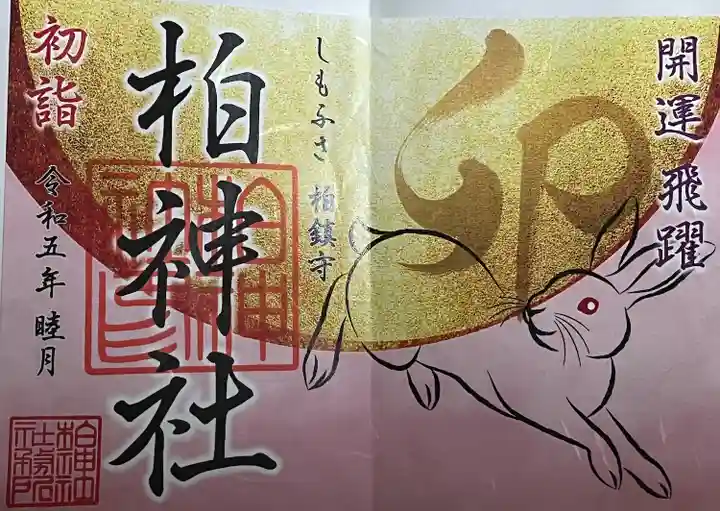 開運 飛躍
卯
しもふさ 柏鎮守
柏神社
初詣
令和五年 睦月
柏神社
社務所印